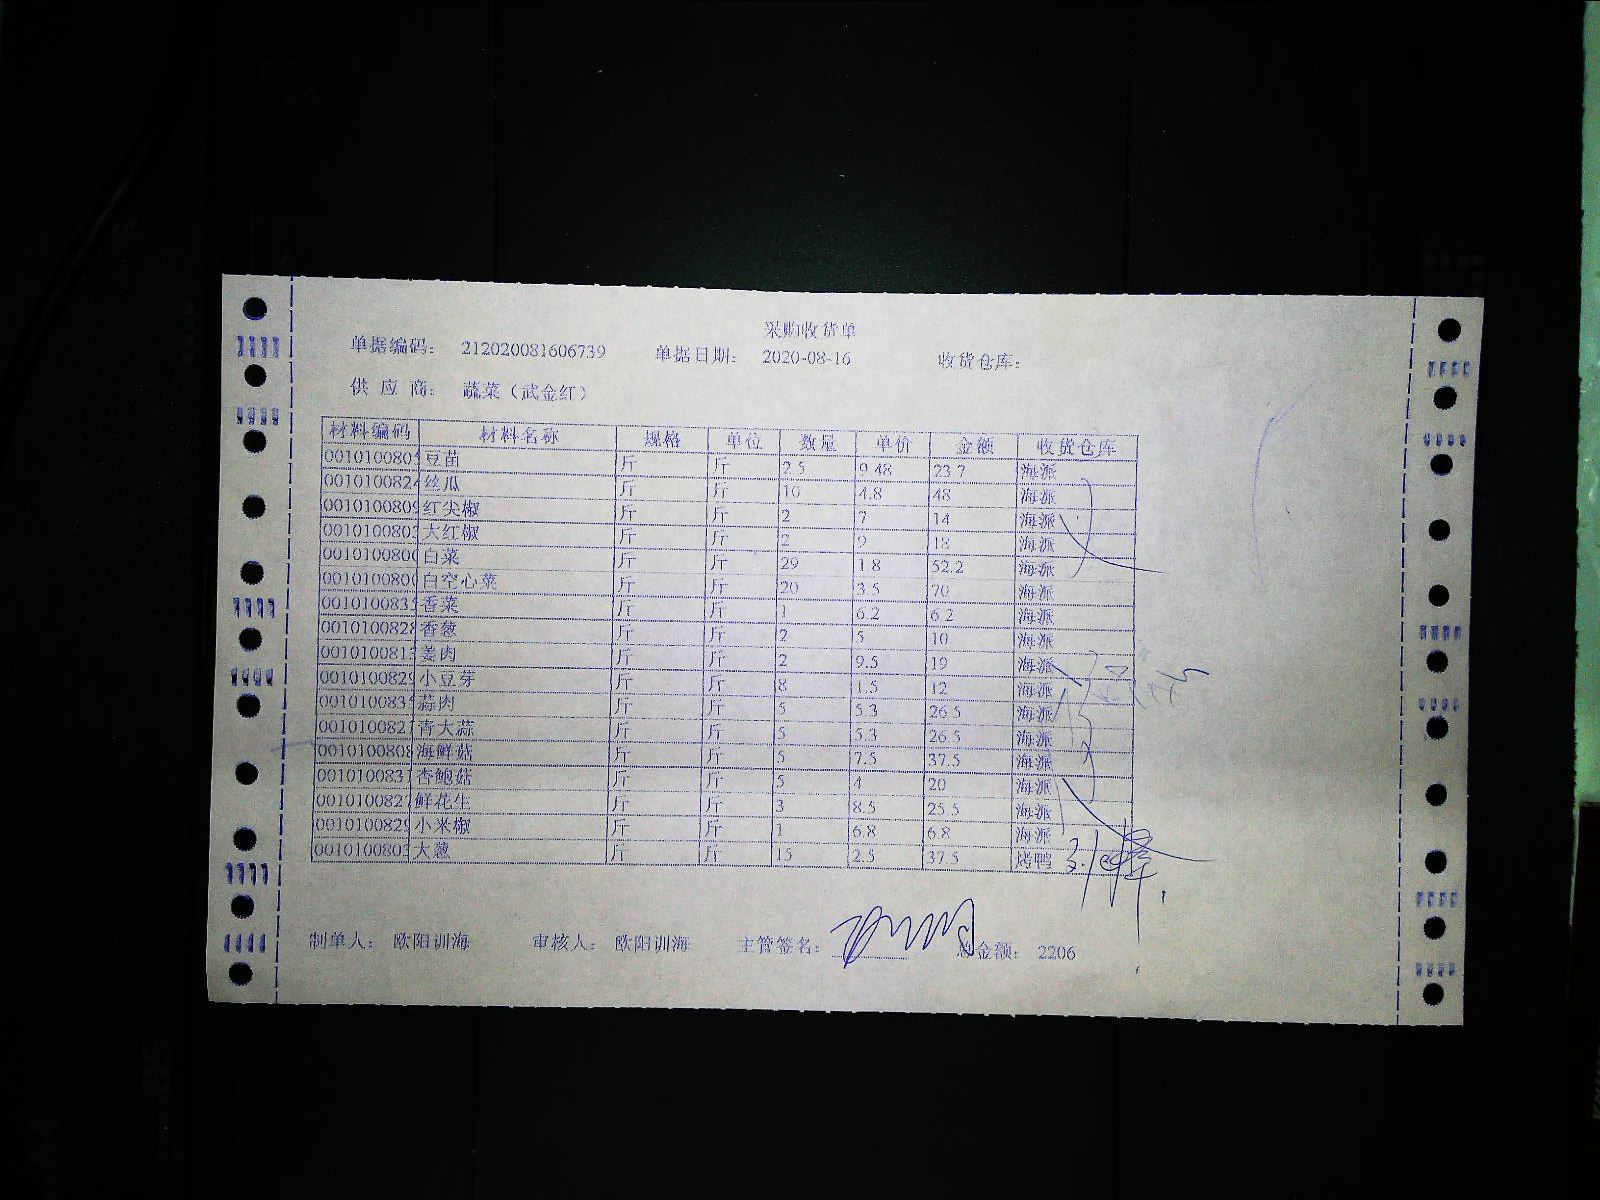 采购收货单
单据编码： 212020081606739 单据日期： 2020-08-16 收货仓库：
供 应 商： 蔬菜（武金红）
材料编码 材料名称 规格 单位 数量 单价 金额 收货仓库
0010100805 豆苗 斤 斤 2.5 9.48 23.7 海派
0010100824 丝瓜 斤 斤 10 4.8 48 海派
0010100809 红尖椒 斤 斤 2 7 14 海派
001010080 大红椒 斤 斤 2 9 18 海派
0010100800 白菜 斤 斤 29 1.8 52.2 海派
0010100800 白空心菜 斤 斤 20 3.5 70 海派
001010083 香菜 斤 斤 1 6.2 6.2 海派
0010100828 香葱 斤 斤 2 5 10 海派
001010081 姜肉 斤 斤 2 9.5 19 海派
0010100829 小豆芽 斤 斤 8 1.5 12 海派
001010083 蒜肉 斤 斤 5 5.3 26.5 海派
001010082 青大蒜 斤 斤 5 5.3 26.5 海派
0010100808 海鲜菇 斤 斤 5 7.5 37.5 海派
001010083 杏鲍菇 斤 斤 5 4 20 海派
001010082 鲜花生 斤 斤 3 8.5 25.5 海派
0010100829 小米椒 斤 斤 1 6.8 6.8 海派
001010080 大葱 斤 斤 15 2.5 37.5 烤鸭
制单人： 欧阳训海 审核人： 欧阳训海 主管签名： 总金额： 2206